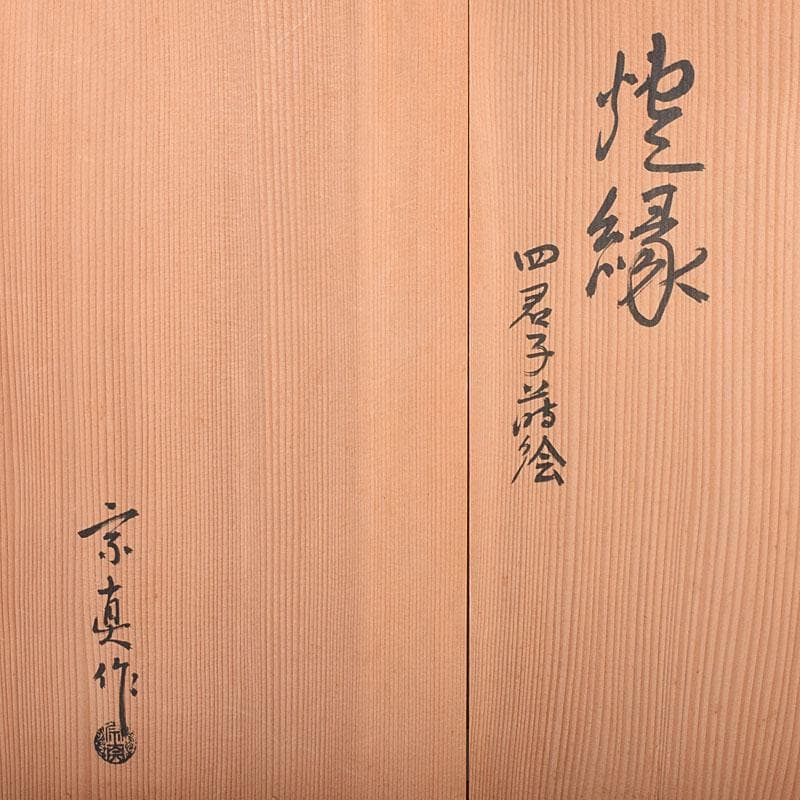 爐縁
四君子蒔絵
宗真作